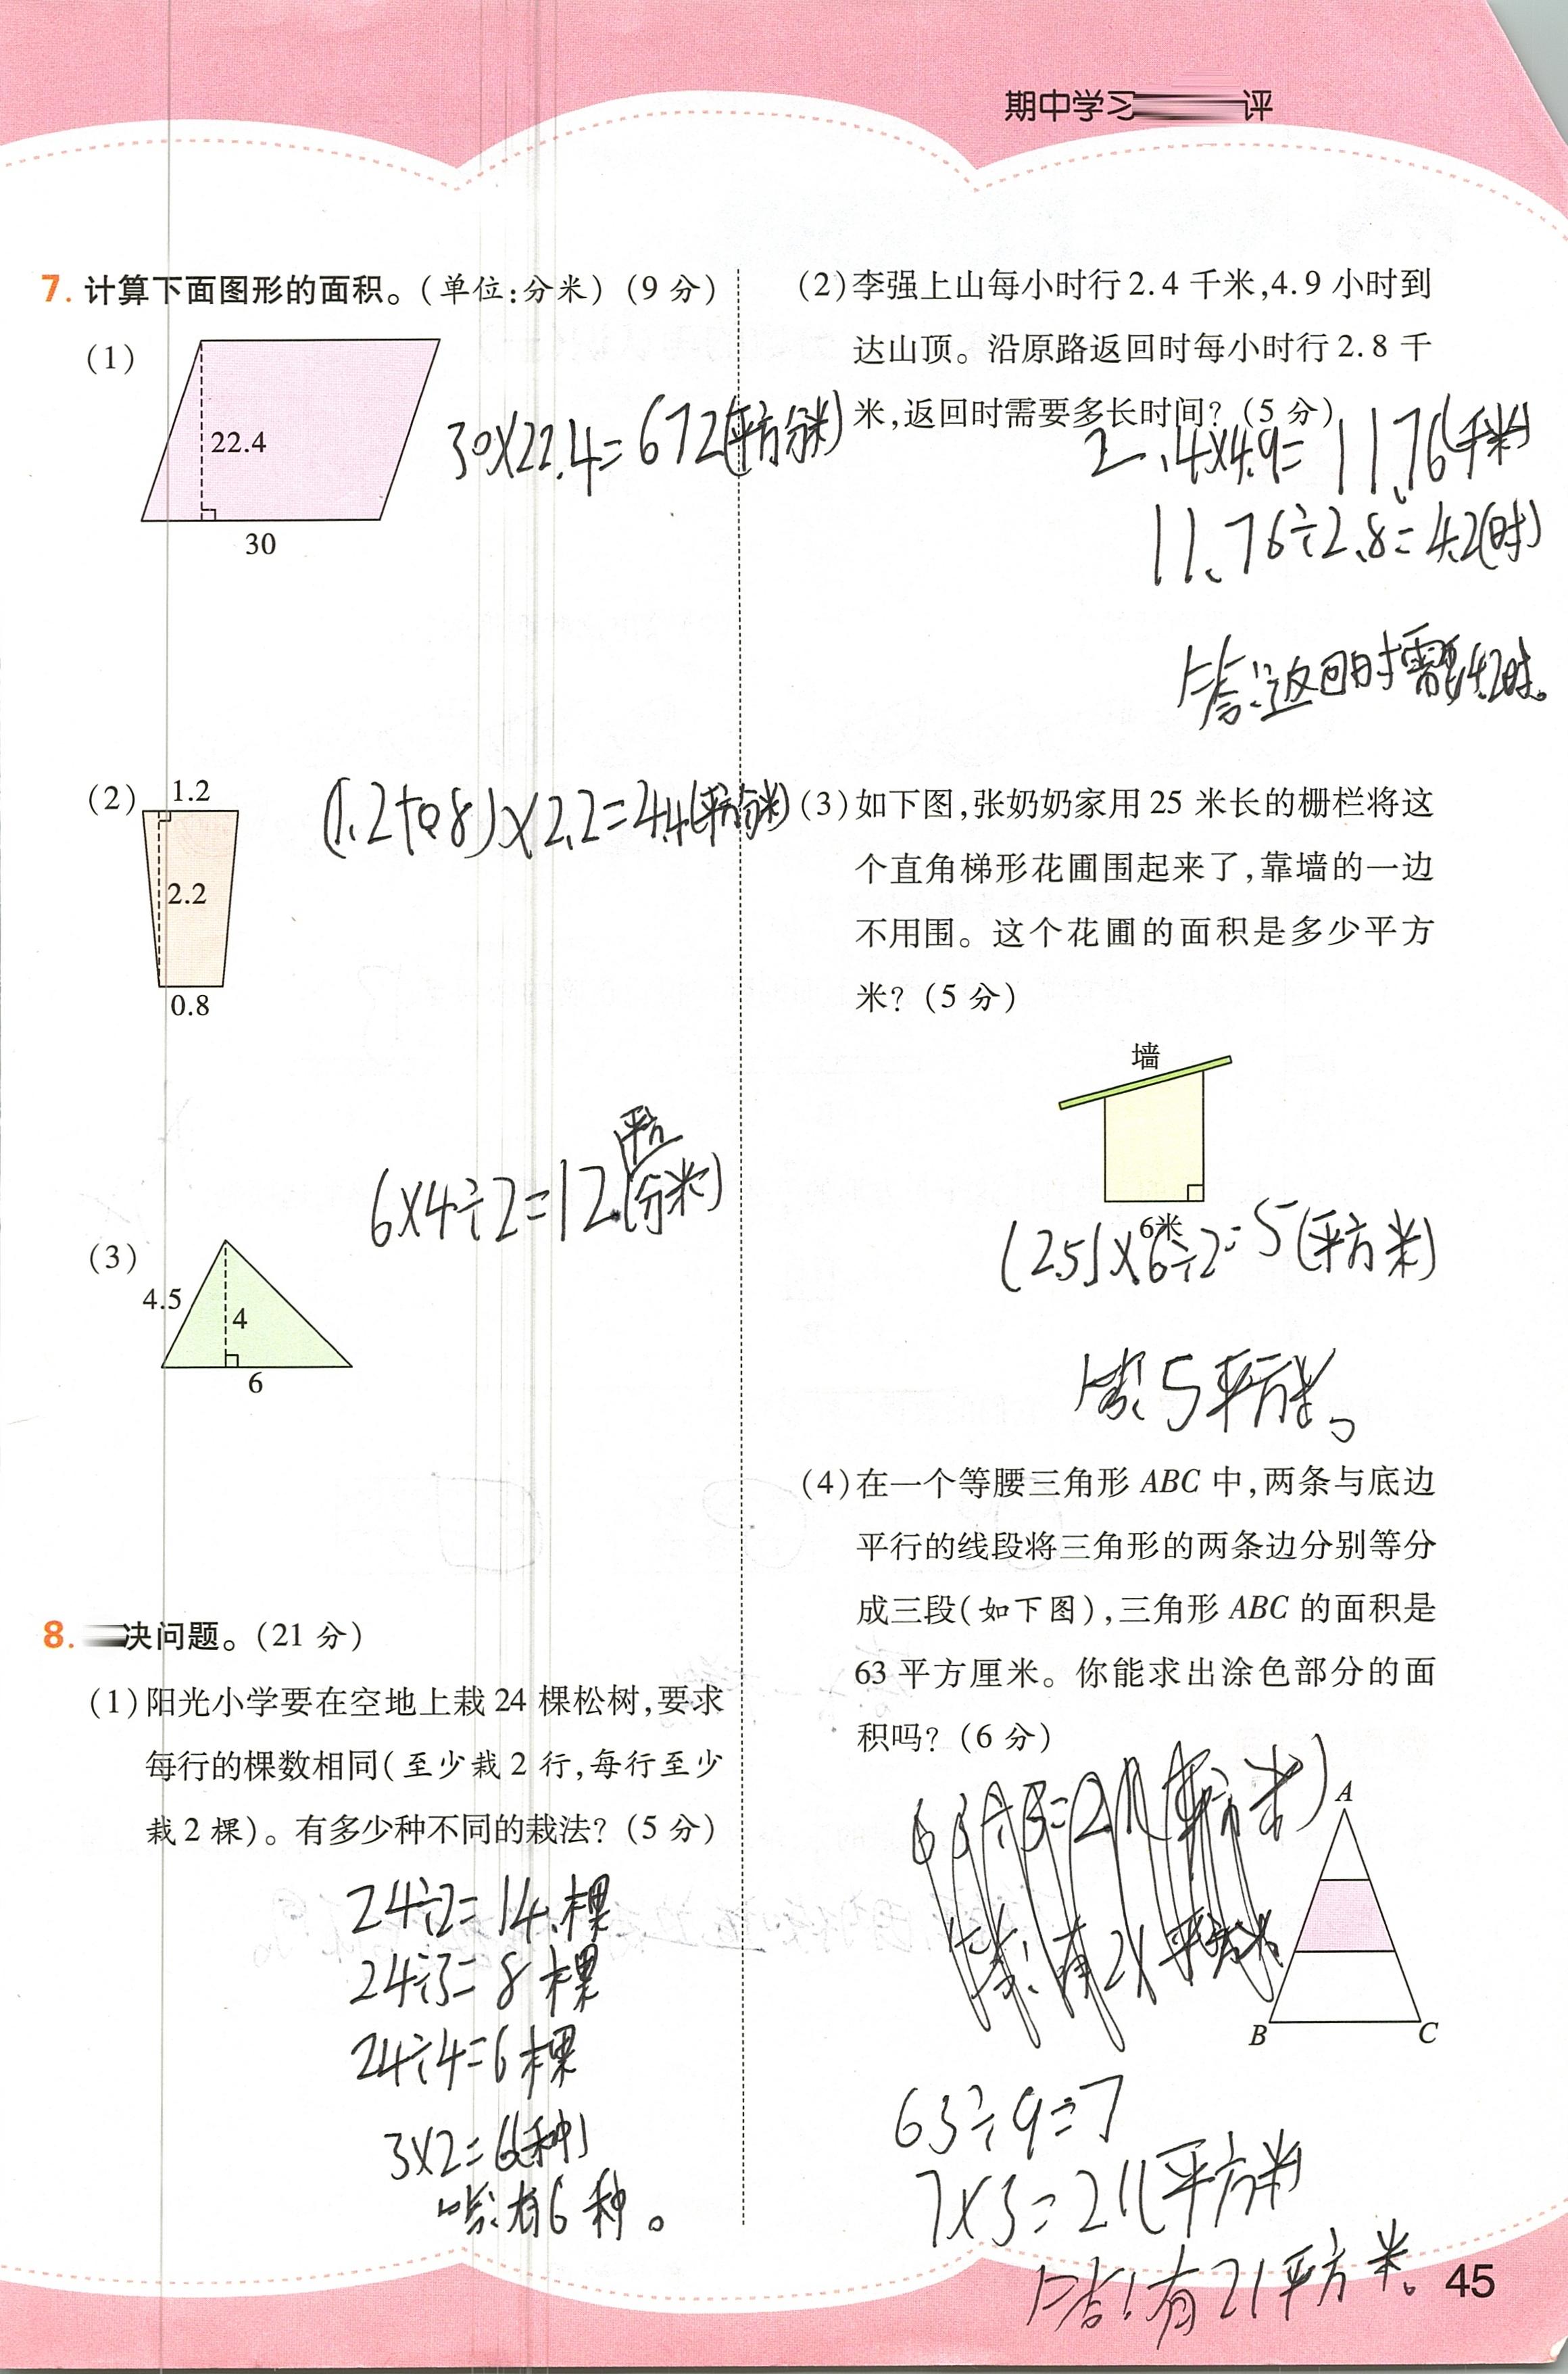 期中学习 评
7. 计算下面图形的面积。(单位:分米)(9 分)
(1)
22.4
30
30×22.4=672(平方分米)
(2)
1.2
2.2
0.8
(1.2+0.8)×2.2=4.4(平方分米)
(3)
4.5
4
6
6×4÷2=12(平方分米)
8. 决问题。(21 分)
(1)阳光小学要在空地上栽 24 棵松树,要求
每行的棵数相同(至少栽 2 行,每行至少
栽 2 棵)。有多少种不同的栽法?(5 分)
24÷2=14棵
24÷3=8棵
24÷4=6棵
3×2=6(种)
答:有6种。
(2)李强上山每小时行 2.4 千米,4.9 小时到
达山顶。沿原路返回时每小时行 2.8 千
米,返回时需要多长时间?(5 分)
2.4×4.9=11.76(千米)
11.76÷2.8=4.2(时)
答:返回时需要4.2时。
(3)如下图,张奶奶家用 25 米长的栅栏将这
个直角梯形花圃围起来了,靠墙的一边
不用围。这个花圃的面积是多少平方
米?(5 分)
墙
6米
(25)×6÷2=5(平方米)
答:5平方米。
(4)在一个等腰三角形 ABC 中,两条与底边
平行的线段将三角形的两条边分别等分
成三段(如下图),三角形 ABC 的面积是
63 平方厘米。你能求出涂色部分的面
积吗?(6 分)
63÷3=21(平方米)
答:有21平方米
A
B
C
63÷9=7
7×3=21(平方米
答:有21平方米。
45